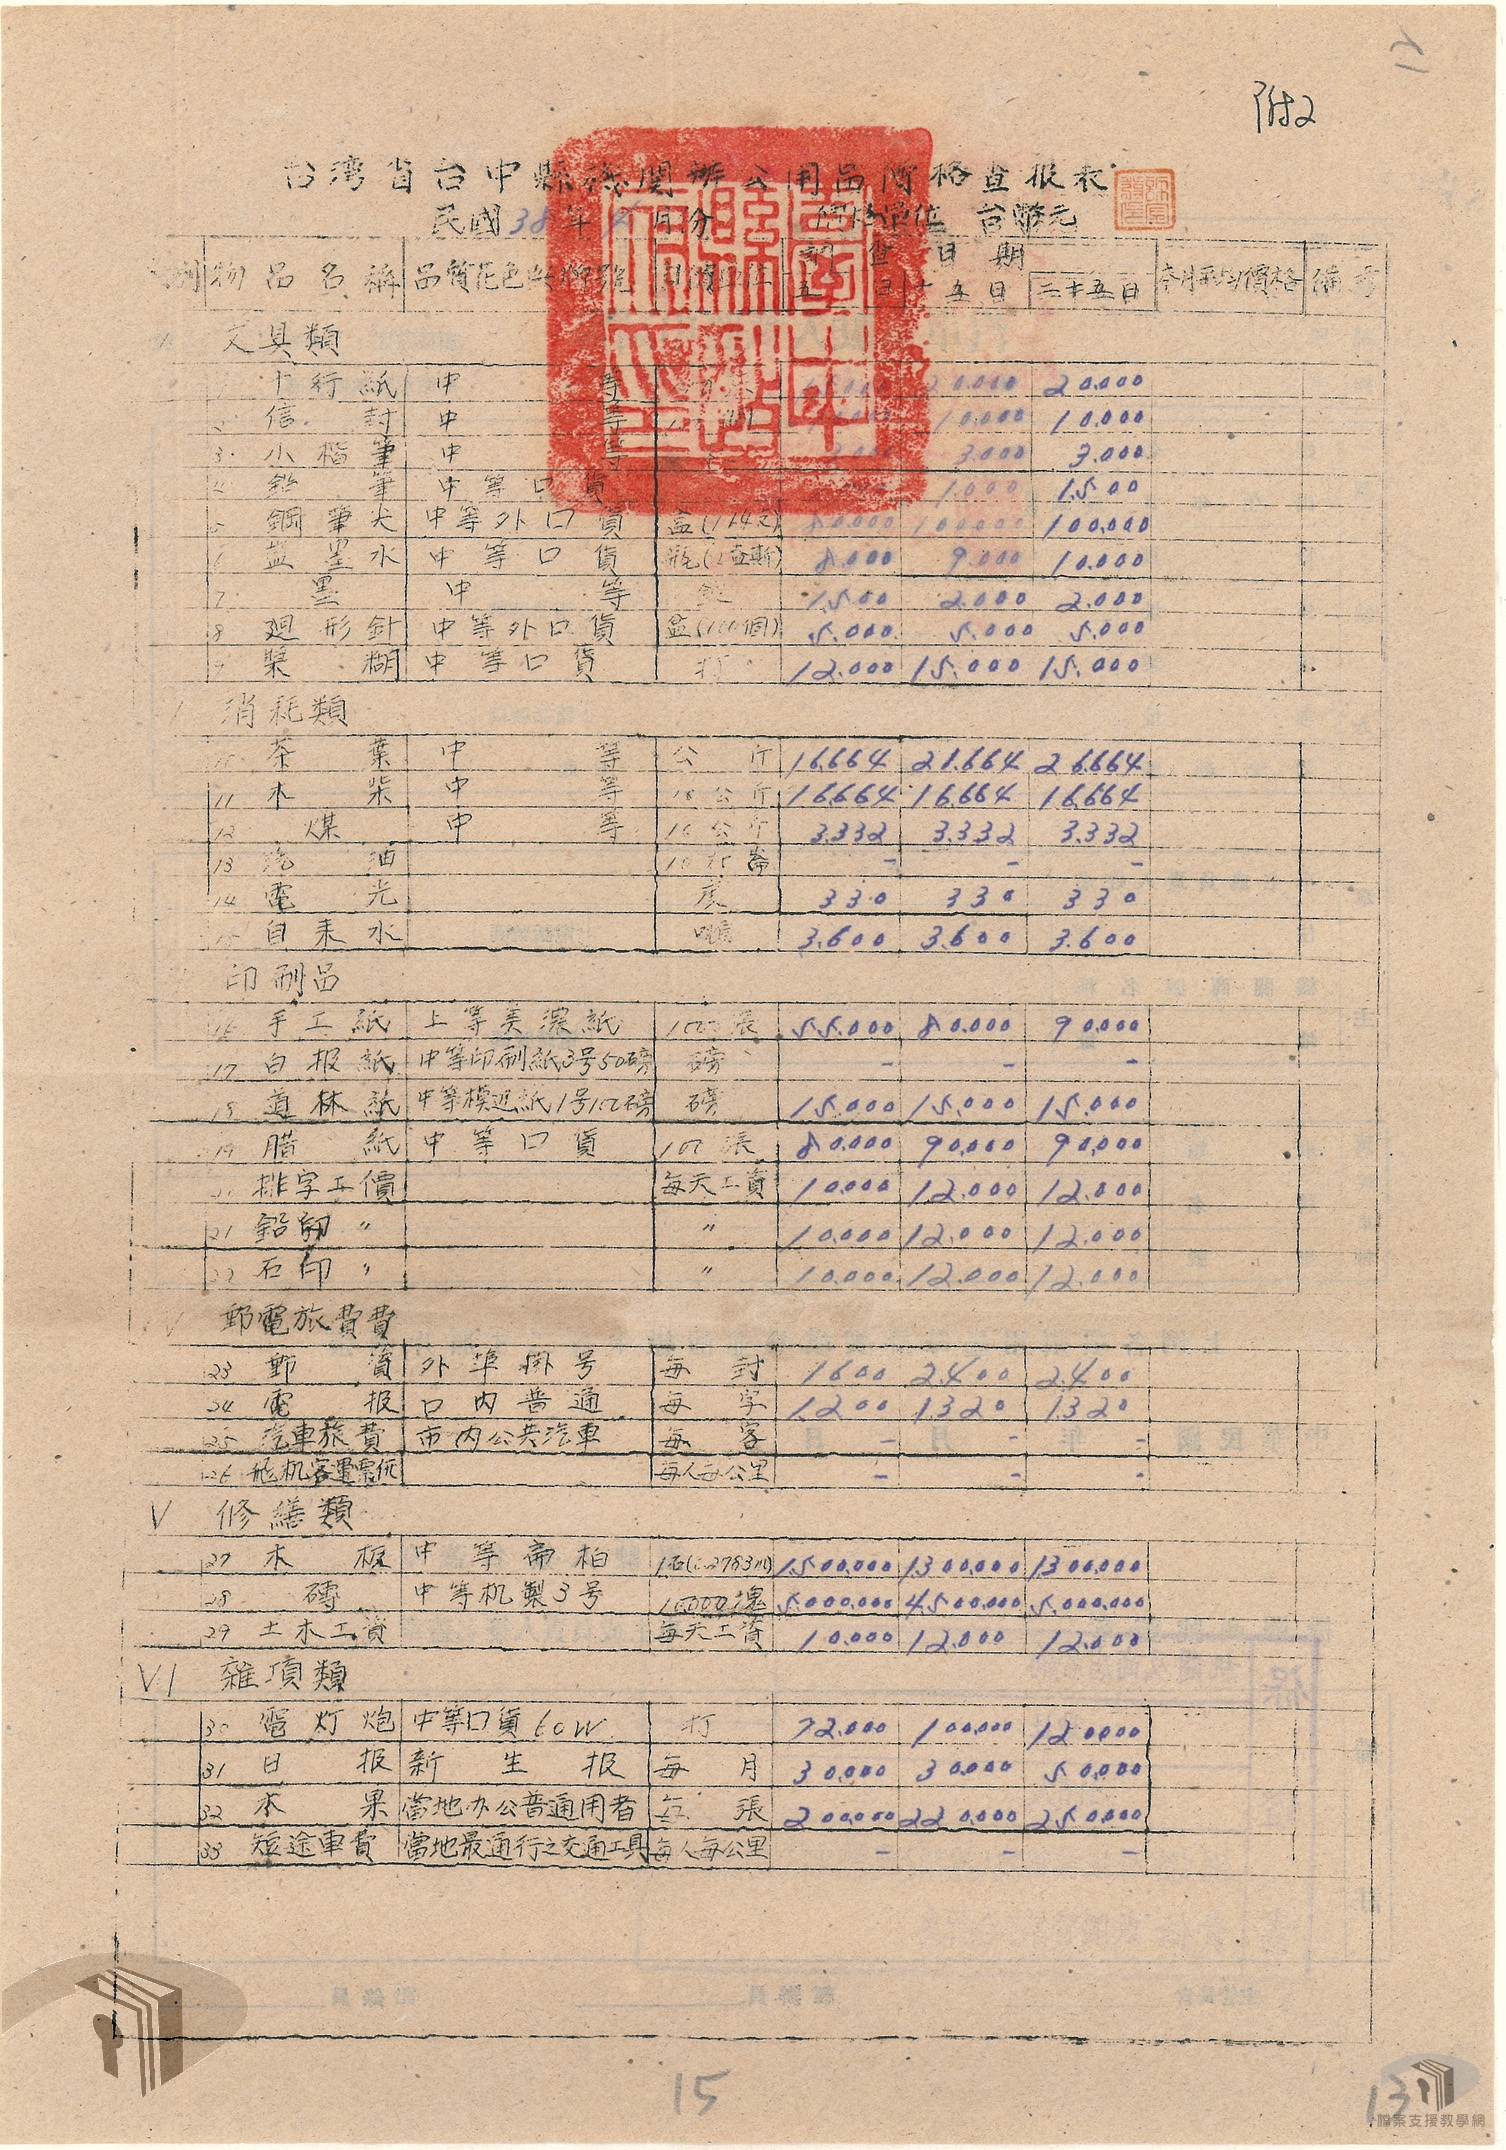 附2
台湾省台中縣機関辦公用品價格查报表
民國38年4月分 價格單位 台幣元
物品名稱 品質花色與牌號 調查日期 本月平均價格 備考
五日 十五日 二十五日
文具類
十行紙 中等 20.000 20.000
2 信封 中等 10.000 10.000
3 小楷筆 中等 3.000 3.000
4 鉛筆 中等口貨 1.000 1.500
5 鋼筆尖 中等外口貨 盒(144支) 80.000 100.000 100.000
6 藍墨水 中等口貨 瓶(2盎斯) 8.000 9.000 10.000
7 墨 中等 錠 1.500 2.000 2.000
8 廻形針 中等外口貨 盒(100個) 5.000 5.000 5.000
9 漿糊 中等口貨 打 12.000 15.000 15.000
消耗類
10 茶葉 中等 公斤 16.664 21.664 26.664
11 木柴 中等 10公斤 16.664 16.664 16.664
12 煤 中等 10公斤 3.332 3.332 3.332
13 汽油 10加崙 - - -
14 電光 度 330 330 330
15 自来水 噸 3.600 3.600 3.600
印刷品
16 手工紙 上等美濃紙 100張 55.000 80.000 90.000
17 白报紙 中等印刷紙3号50磅 磅 - - -
18 道林紙 中等模造紙1号100磅 磅 15.000 15.000 15.000
19 腊紙 中等口貨 100張 80.000 90.000 90.000
排字工價 每天工資 10.000 12.000 12.000
21 鉛印 〃 〃 10.000 12.000 12.000
22 石印 〃 〃 10.000 12.000 12.000
IV 郵電旅費費
23 郵資 外埠掛号 每封 1600 2.400 2.400
24 電报 口内普通 每字 1.200 1.320 1.320
25 汽車旅費 市内公共汽車 每客 - - -
26 飛机客運票價 每人每公里 - - -
V 修繕類
27 木板 中等扁柏 1石(0.2783M) 1.500.000 1.300.000 1.300.000
28 磚 中等机製3号 10000塊 5.000.000 4.500.000 5.000.000
29 土木工資 每天工資 10.000 12.000 12.000
VI 雜項類
30 電灯炮 中等口貨60W 打 72.000 100.000 120.000
31 日报 新生报 每月 30.000 30.000 50.000
32 木果 當地办公普通用者 每張 200.000 220.000 250.000
33 短途車費 當地最通行之交通工具 每人每公里 - - -
15
13
檔案支援教學網